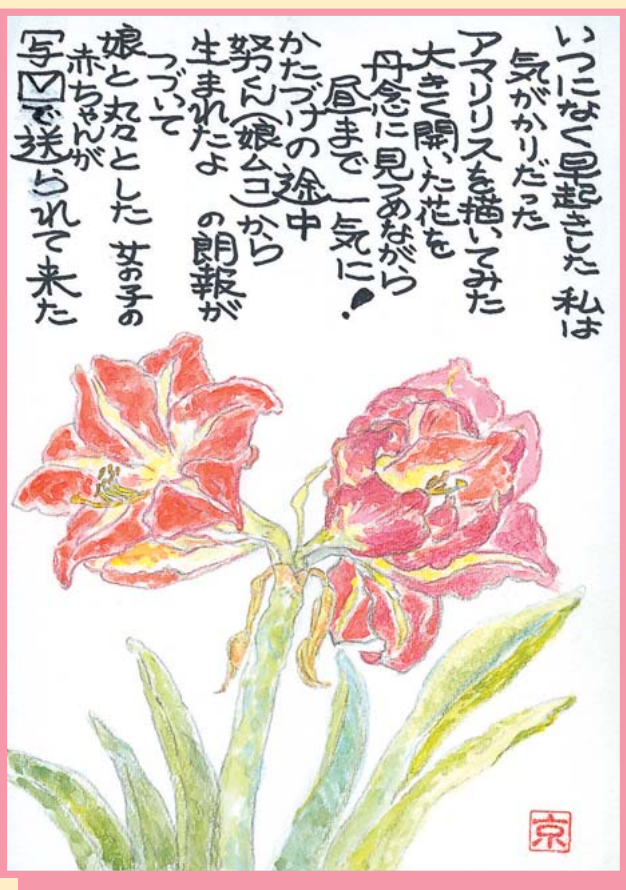 いつになく早起きした 私は
気がかりだった
アマリリスを描いてみた
大きく開いた花を
丹念に見つめながら
昼まで一気に!
かたづけの途中
努くん(娘ムコ)から
生まれたよ の朗報が
つづいて
娘と丸々とした 女の子の
赤ちゃんが
写♡で送られて来た
京